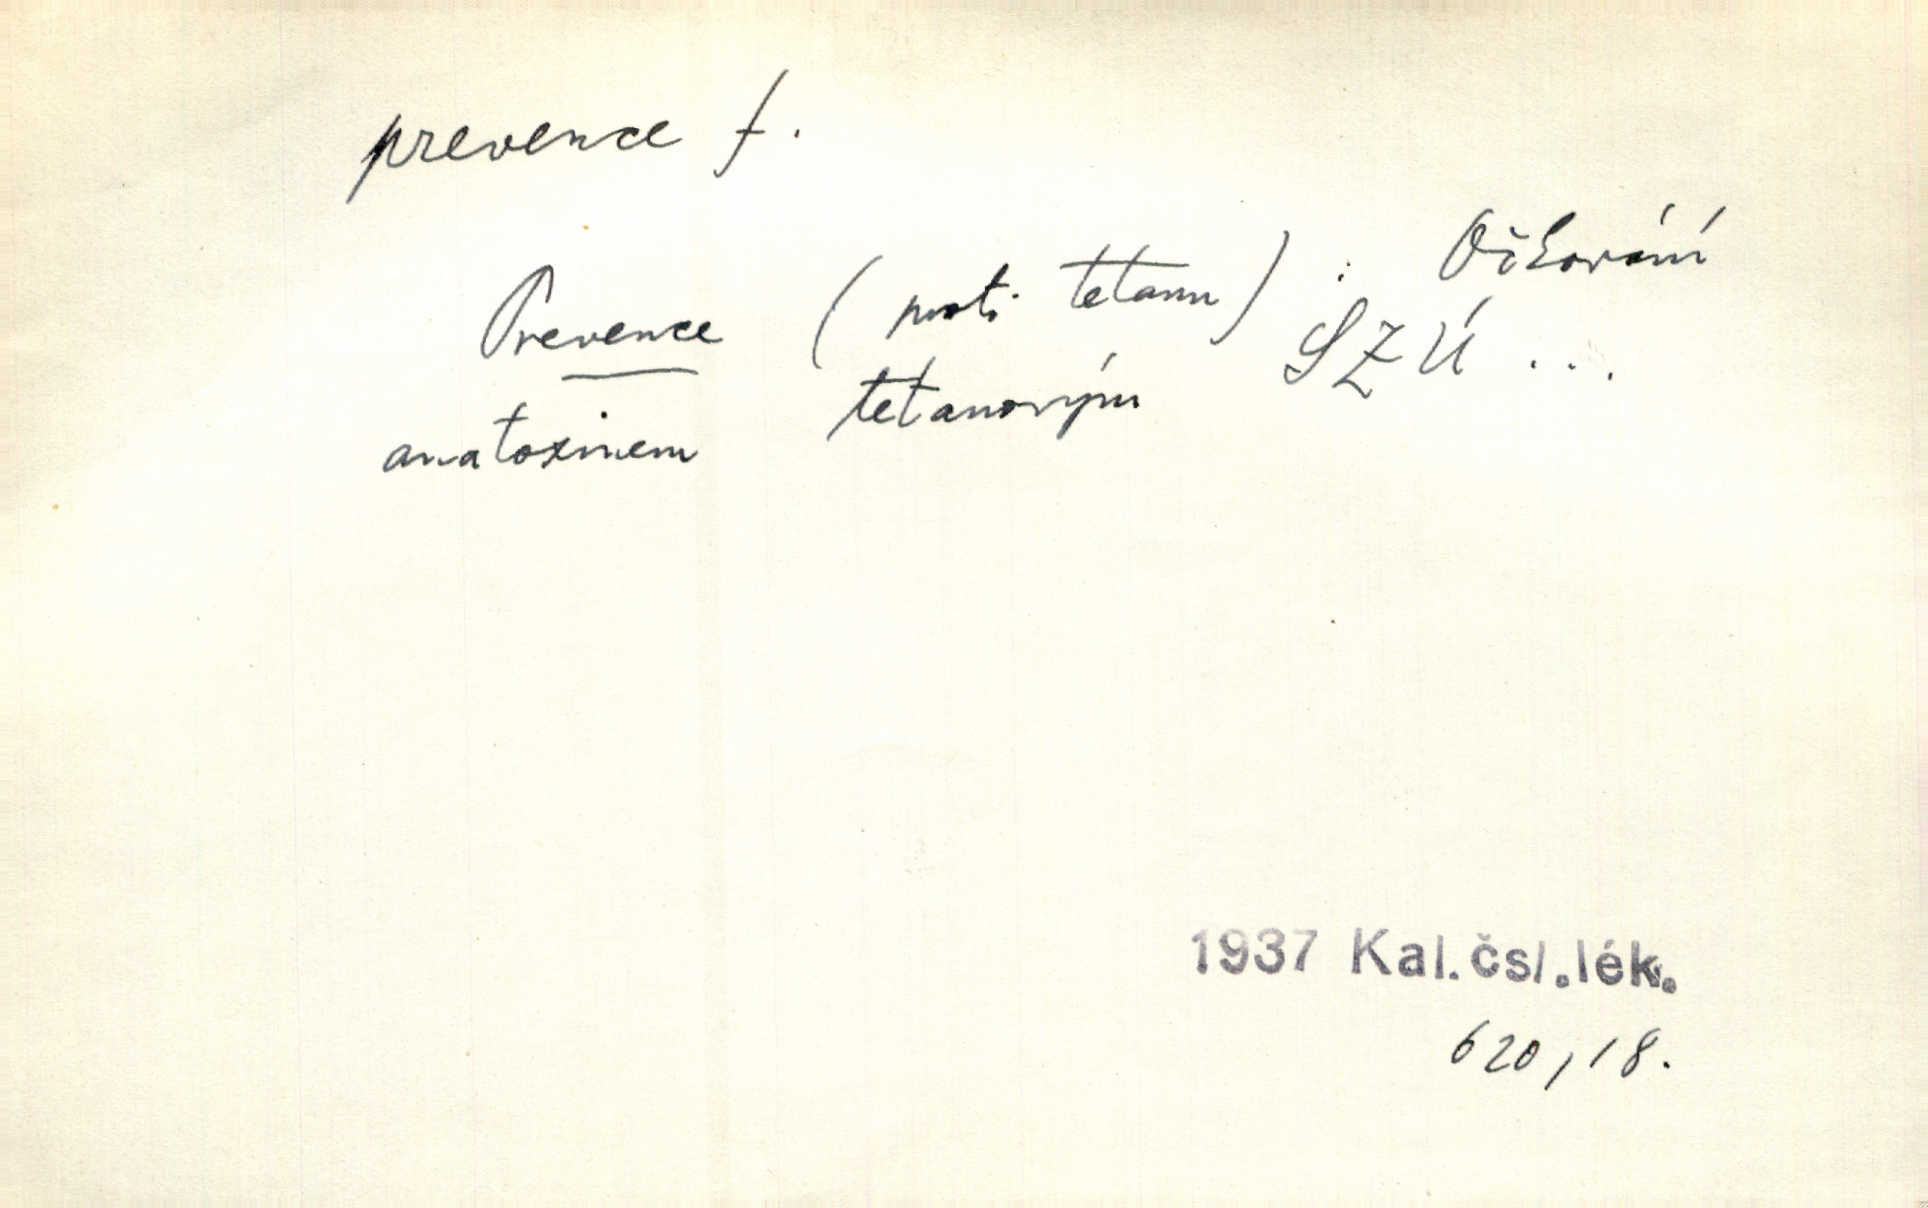 prevence f.
Prevence (proti tetanu): Očkování
anatoxinem tetanovým SZÚ ...
1937 Kal.čsl.lék.
620,18.